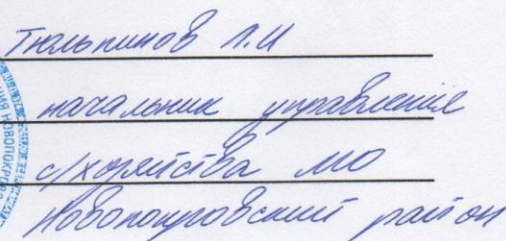 Тюльпинов Л.И
начальник управление
с/хозяйства МО
Новопокровский район
НОВОПОКРОВС